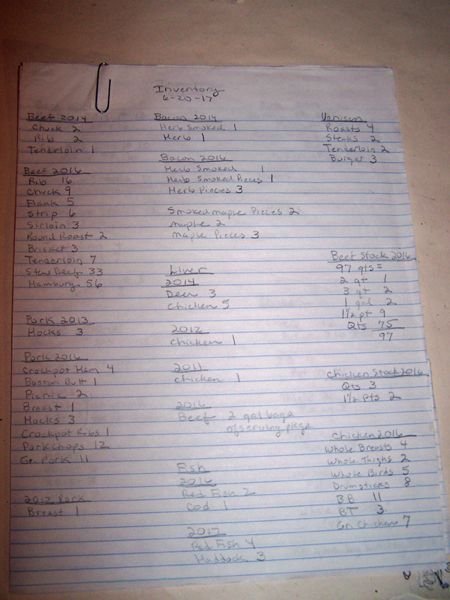 Inventory
6-20-17
Beef 2014
Chuck 2
Rib 2
Tenderloin 1
Beef 2016
Rib 16
Chuck 9
Flank 5
Strip 6
Sirloin 3
Round Roast 2
Brisket 3
Tenderloin 7
Stew Beef 33
Hamburg 56
Pork 2013
Hocks 3
Pork 2016
Crockpot Ham 4
Boston Butt 1
Picnic 2
Breast 1
Hocks 3
Crockpot Ribs 1
Pork Chops 12
Gr. Pork 11
2017 Pork
Breast 1
Bacon 2014
Herb Smoked 1
Herb 1
Bacon 2016
Herb Smoked 1
Herb Smoked Pieces 1
Herb Pieces 3
Smoked maple Pieces 2
maple 2
maple Pieces 3
Liver
2014
Deer 3
Chicken 5
2012
Chicken 1
2011
chicken 1
2016
Beef 2 gal bags
of serving pkgs
Fish
2016
Red Fish 2
Cod 1
2017
Red Fish 4
Haddock 3
Venison
Roasts 4
Steaks 2
Tenderloin 2
Burger 3
Beef Stock 2016
97 qts =
2 qt 1
3 qt 2
1 gal 2
1 1/2 pt 9
Qts 75
97
Chicken Stock 2016
Qts 3
1 1/2 Pts 2
Chicken 2016
Whole Breasts 4
Whole Thighs 2
Whole Birds 5
Drumsticks 8
BB 11
BT 3
Gr. Chicken 7